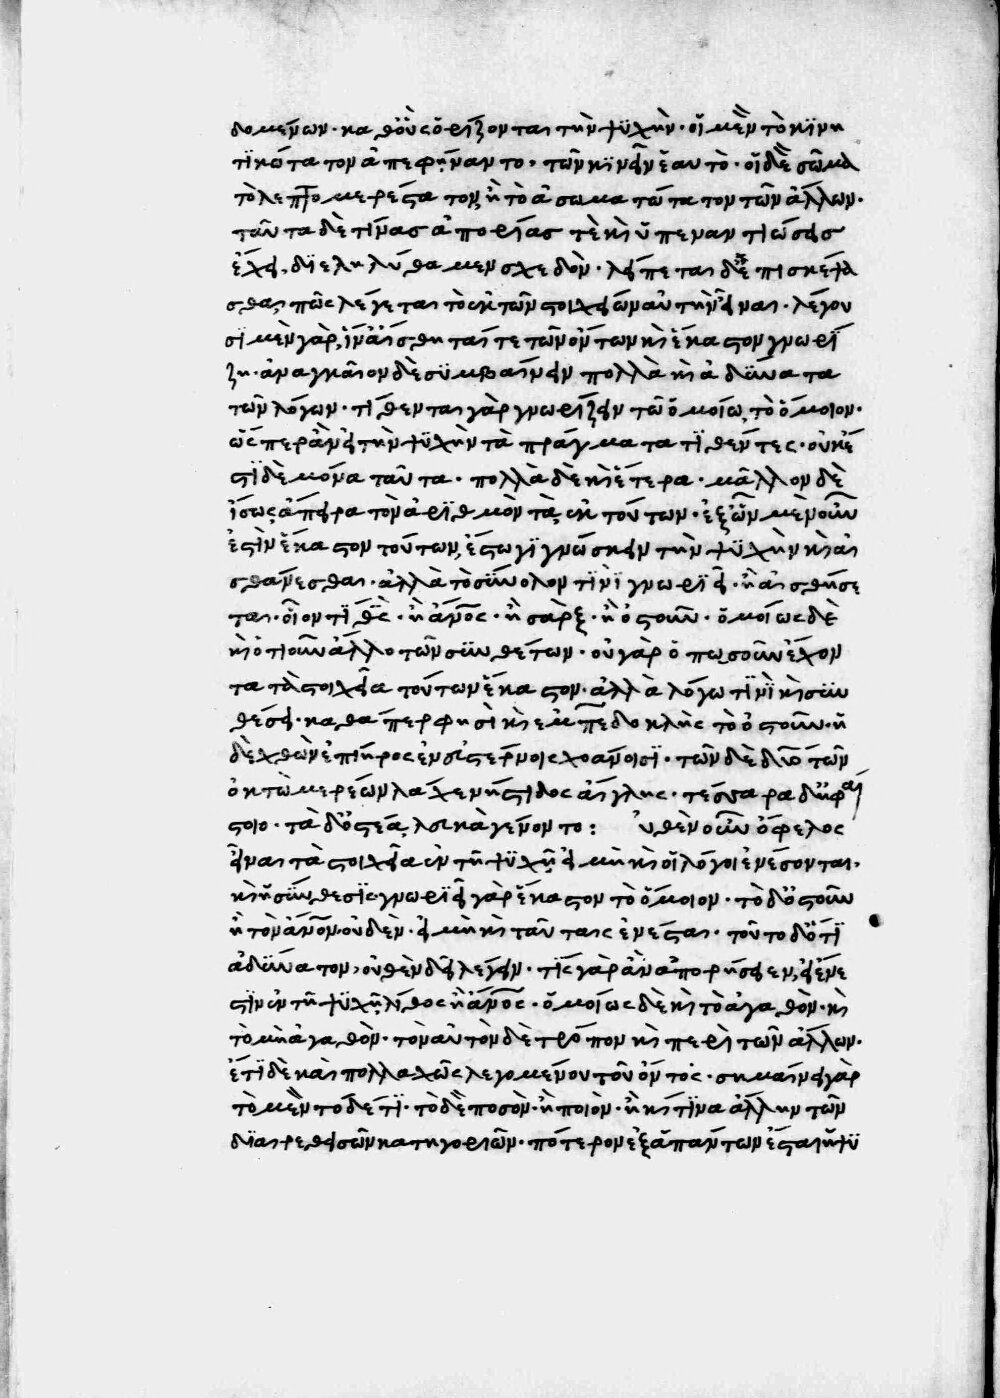 δομένων· καθ' οὓς ὁρίζονται τὴν ψυχήν· οἱ μὲν τὸ κινη
τικώτατον ἀπεφήναντο· τῶν κινεῖν ἑαυτό· οἱ δὲ σῶμα
τὸ λεπτομερέστατον, ἢ τὸ ἀσωματώτατον τῶν ἄλλων·
ταῦτα δὲ τίνας ἀπορίας τὲ καὶ ὑπεναντιώσεις
ἔχει, διεληλύθαμεν σχεδόν· λείπεται δὲ πισκέψα
σθαι, πῶς λέγεται τὸ ἐκ τῶν στοιχείων αὐτὴν εἶναι· λέγου
σι μὲν γὰρ, ἵν' αἰσθηταί τε τῶν ὄντων καὶ ἕκαστον γνωρί
ζη· ἀναγκαῖον δὲ συμβαίνειν πολλὰ καὶ ἀδύνατα
τῶν λόγων· τίθενται γὰρ γνωρίζειν τῶ ὁμοίω, τὸ ὅμοιον·
ὥσπερ ἂν εἰ τὴν ψυχὴν τὰ πράγματα τιθέντες· οὐκ ἔ
στι δὲ μόνα ταῦτα· πολλὰ δὲ καὶ ἕτερα· μᾶλλον δὲ
ἴσως ἄπειρα τὸν ἀριθμὸν τὰ ἐκ τούτων· ἐξ ὧν μὲν οὖν
ἐστὶν ἕκαστον τούτων, ἔστω γινώσκειν τὴν ψυχὴν καὶ αἰ
σθάνεσθαι· ἀλλὰ τὸ σύνολον τίνι γνωριεῖ· ἢ αἰσθήσε
ται· οἷον τί θς· ἢ ἄνος· ἢ σάρξ· ἢ ὀστοῦν· ὁμοίως δὲ
καὶ ὁτιοῦν ἄλλο τῶν συνθέτων· οὐ γὰρ ὁπωσοῦν ἔχον
τα τὰ στοιχεῖα τούτων ἕκαστον· ἀλλὰ λόγω τινὶ καὶ συν
θέσει· καθάπερ φησὶ καὶ ἐμπεδοκλῆς τὸ ὀστοῦν· ἡ
δὲ χθὼν ἐπίηρος ἐν εὐστέρνοις χοάνοισι· τῶν δὲ δύο τῶν
ὀκτὼ μερέων λάχε νήστιδος αἴγλης· τέσσαρα δ' ἡφαί
στοιο· τὰ δ' ὀστέα, λευκὰ γένοντο: οὐθὲν οὖν ὄφελος
εἶναι τὰ στοιχεῖα ἐν τῆ ψυχῆ, εἰ μὴ καὶ οἱ λόγοι ἐνέσονται·
καὶ ἡ σύνθεσις· γνωριεῖ γὰρ ἕκαστον τὸ ὅμοιον· τὸ δ' ὀστοῦν
ἢ τὸν ἄνον, οὐδέν· εἰ μὴ καὶ ταῦτα ἐνέσται· τοῦτο δ' ὅτι
ἀδύνατον, οὐθὲν δεῖ λέγειν· τίς γὰρ ἂν ἀπορήσειεν, εἰ ἔνε
στιν ἐν τῆ ψυχῆ λίθος ἢ ἄνος· ὁμοίως δὲ καὶ τὸ ἀγαθόν· καὶ
τὸ μὴ ἀγαθόν· τὸν αὐτὸν δὲ τρόπον καὶ περὶ τῶν ἄλλων·
ἔτι δὲ καὶ πολλαχῶς λεγομένου τοῦ ὄντος· σημαίνει γὰρ
τὸ μὲν τόδε τι· τὸ δὲ ποσόν· ἢ ποιόν· ἢ καὶ τίνα ἄλλην τῶν
διαιρεθεισῶν κατηγοριῶν· πότερον ἐξ ἁπάντων ἔσται ἡ ψυ